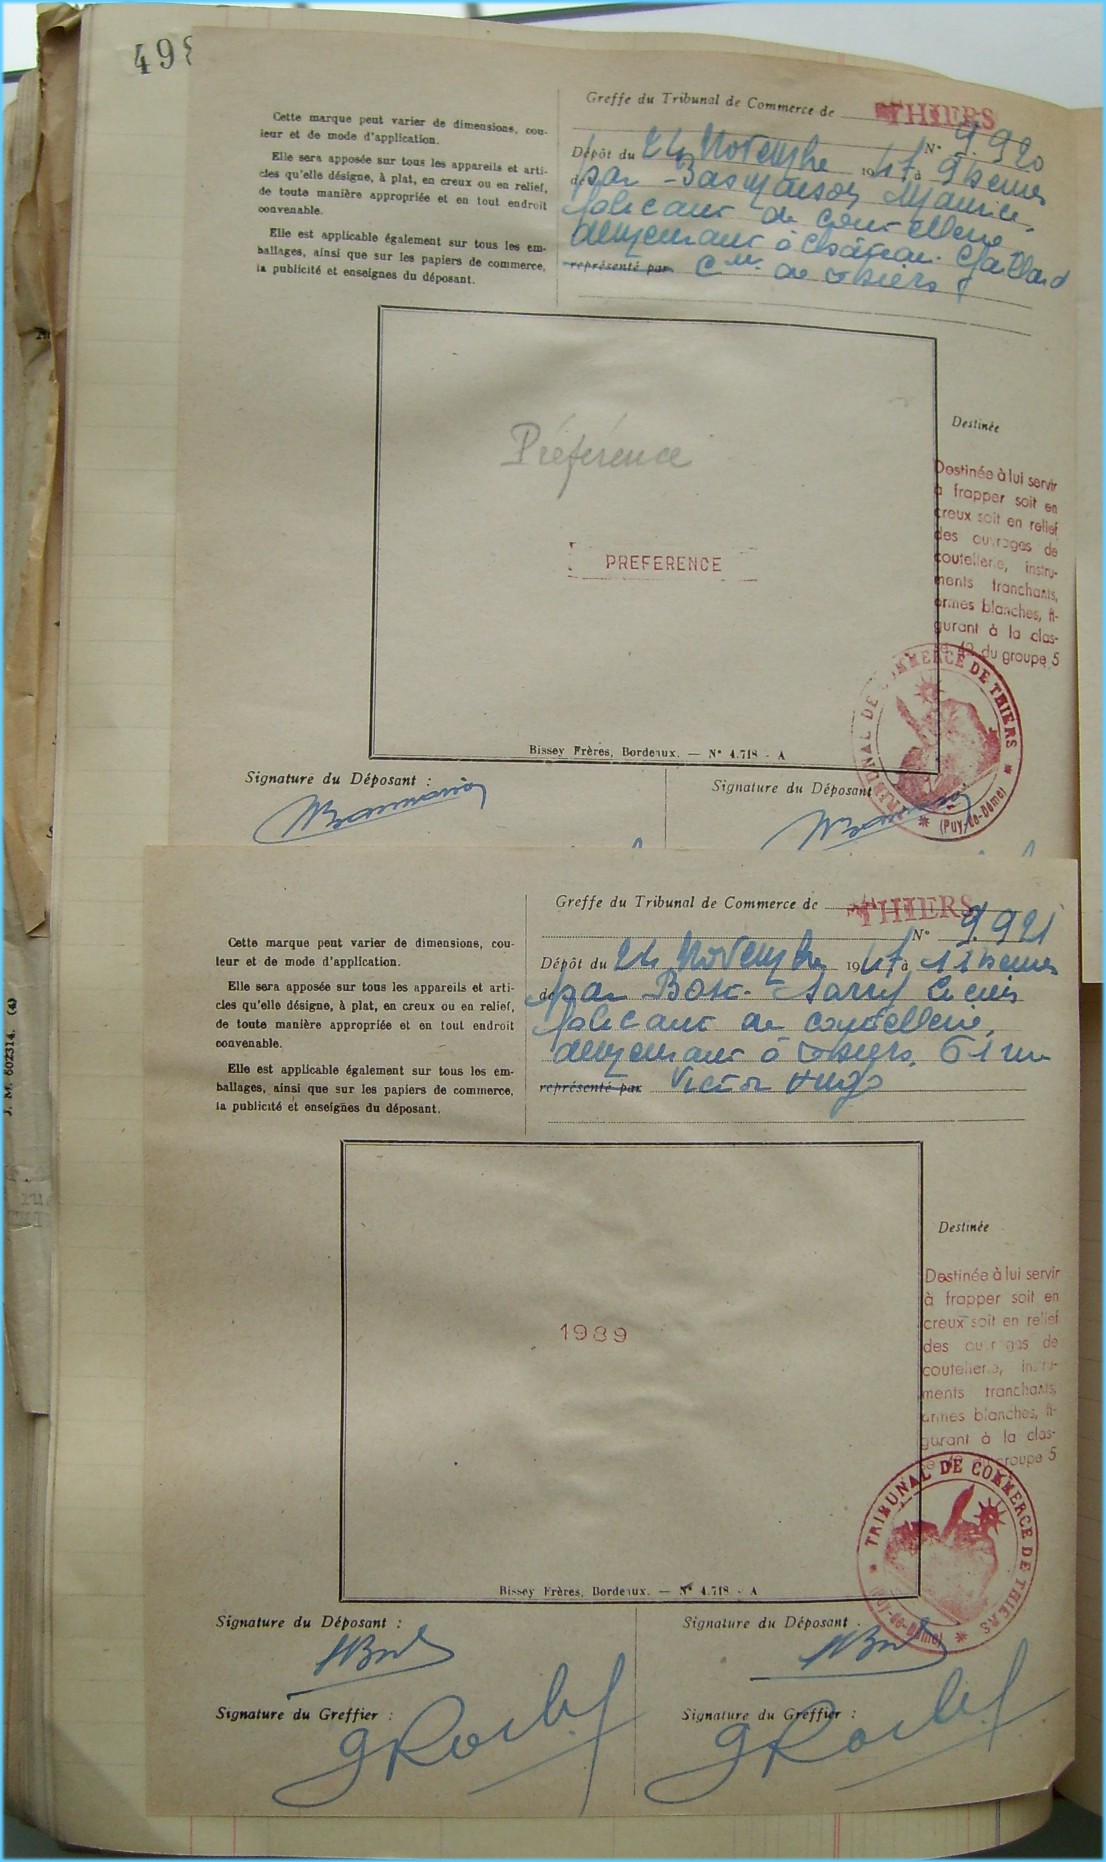 498
Cette marque peut varier de dimensions, cou-
leur et de mode d'application.
Elle sera apposée sur tous les appareils et arti-
cles qu'elle désigne, à plat, en creux ou en relief,
de toute manière appropriée et en tout endroit
convenable.
Elle est applicable également sur tous les em-
ballages, ainsi que sur les papiers de commerce,
la publicité et enseignes du déposant.
Greffe du Tribunal de Commerce de THIERS
N° 9.920
Dépôt du 24 Novembre 1947 à 9 heures
de par Basmaison Maurice,
fabricant de coutellerie
demeurant à Château-Gaillard
représenté par Cne de Thiers
Préférence
PREFERENCE
Bissey Frères, Bordeaux. — N° 4.718 - A
Destinée
Destinée à lui servir
à frapper soit en
creux soit en relief
des ouvrages de
coutellerie, instru-
ments tranchants,
armes blanches, fi-
gurant à la clas-
se 42 du groupe 5
TRIBUNAL DE COMMERCE DE THIERS
(Puy-de-Dôme)
Signature du Déposant :
Signature du Déposant
Cette marque peut varier de dimensions, cou-
leur et de mode d'application.
Elle sera apposée sur tous les appareils et arti-
cles qu'elle désigne, à plat, en creux ou en relief,
de toute manière appropriée et en tout endroit
convenable.
Elle est applicable également sur tous les em-
ballages, ainsi que sur les papiers de commerce,
la publicité et enseignes du déposant.
Greffe du Tribunal de Commerce de THIERS
N° 9.921
Dépôt du 24 Novembre 1947 à 11 heures
de par Bost-
fabricant de coutellerie,
demeurant à Thiers, 61 rue
représenté par Victor Hugo
1989
Bissey Frères, Bordeaux. — N° 4.718 - A
Destinée
Destinée à lui servir
à frapper soit en
creux soit en relief
des ouvrages de
coutellerie, instru-
ments tranchants,
armes blanches, fi-
gurant à la clas-
se 42 du groupe 5
TRIBUNAL DE COMMERCE DE THIERS
(Puy-de-Dôme)
Signature du Déposant :
Signature du Déposant :
Signature du Greffier :
Signature du Greffier :
J. M. 602314. (4)